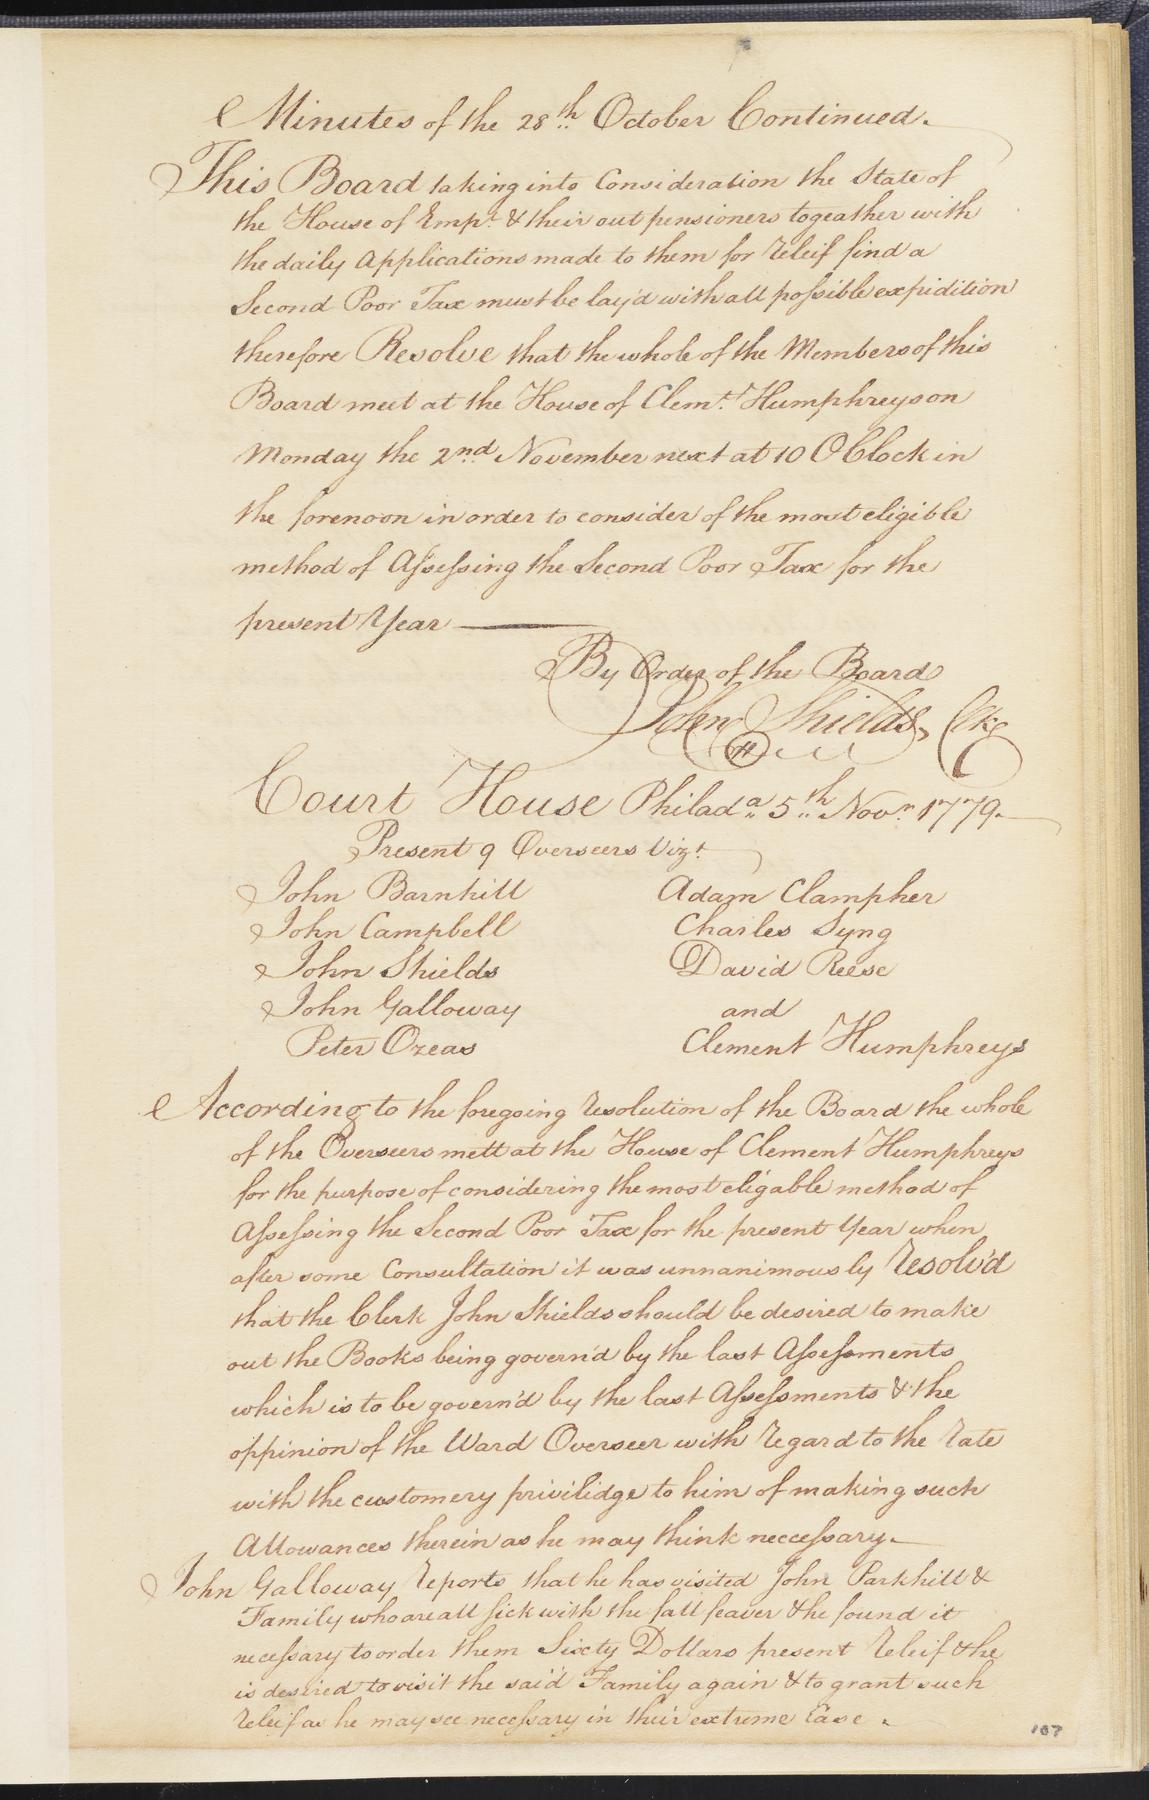 Minutes of the 28th October Continued.
This Board taking into Consideration the State of
the House of Empt. & their out pensioners togeather with
the daily Applications made to them for releif find a
Second Poor Tax must be lay'd with all possible expidition
therefore Resolve that the whole of the Members of this
Board meet at the House of Clemt. Humphreys on
Monday the 2nd November next at 10 OClock in
the forenoon in order to consider of the most eligible
method of Assessing the Second Poor Tax for the
present Year
By Order of the Board
John Shields, Clk
Court House Philada 5th Novr 1779.
Present 9 Overseers Vizt.
John Barnhill Adam Clampher
John Campbell Charles Syng
John Shields David Reese
John Galloway and
Peter Ozeas Clement Humphreys
According to the foregoing resolution of the Board the whole
of the Overseers mett at the House of Clement Humphreys
for the purpose of considering the most eligable method of
Assessing the Second Poor Tax for the present Year when
after some Consultation it was unnanimously Resolv'd
that the Clerk John Shields should be desired to make
out the Books being govern'd by the last Assessments
which is to be govern'd by the last Assessments & the
oppinion of the Ward Overseer with regard to the rate
with the customery privilidge to him of making such
Allowances therein as he may think neccessary.
John Galloway reports that he has visited John Parkhill &
Family who are all sick with the fall feaver & he found it
necessary to order them Sixty Dollars present releif & he
is desired to visit the said Family again & to grant such
releif as he may see necessary in their extreme Case.
107